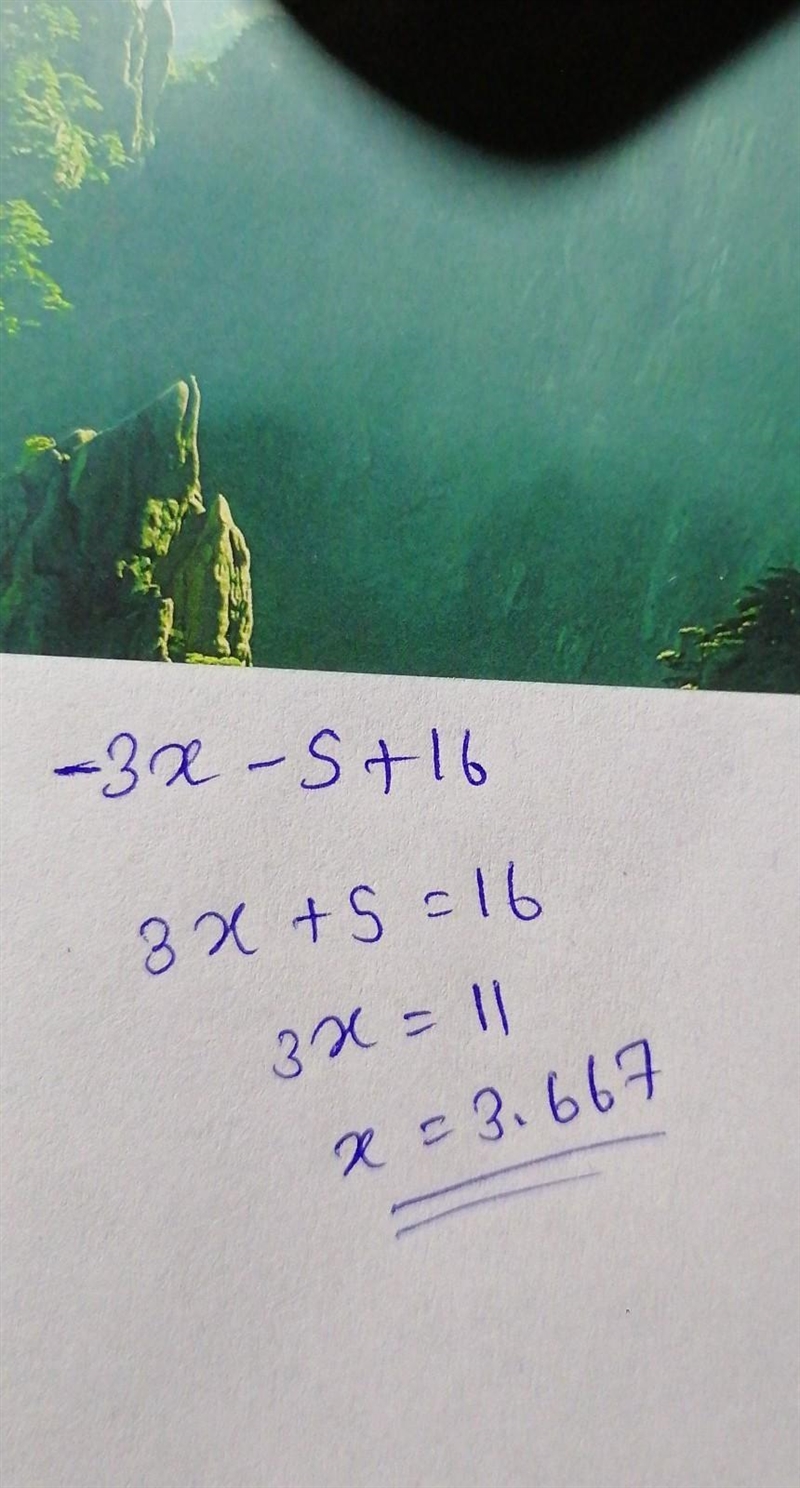 -3x - 5 + 16
3x + 5 = 16
3x = 11
x = 3.667